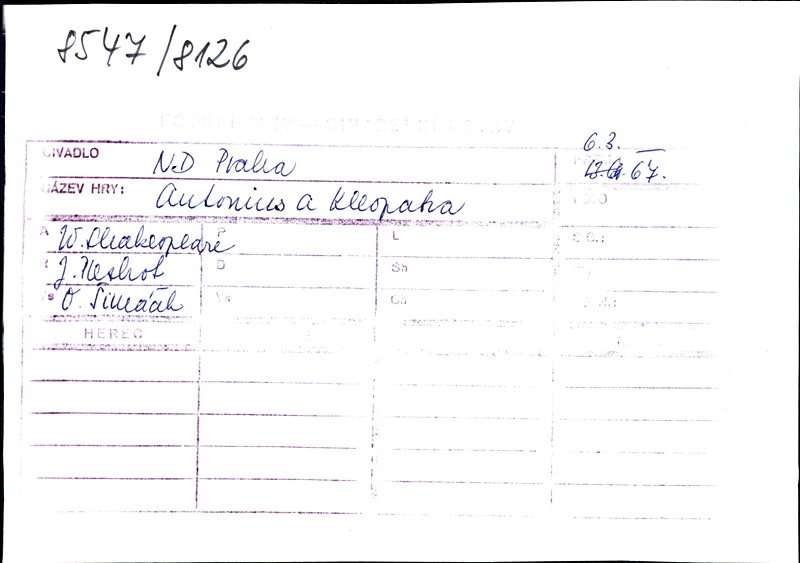 8547/8126
FOTOARCHIV — DIVADELNÍ ÚSTAV
6.3.
DIVADLO ND Praha 67.
NÁZEV HRY: Antonius a Kleopatra
A W. Shakespeare P L
J. Neshot D Sh
O. Šimáček Vs Ch
HEREC